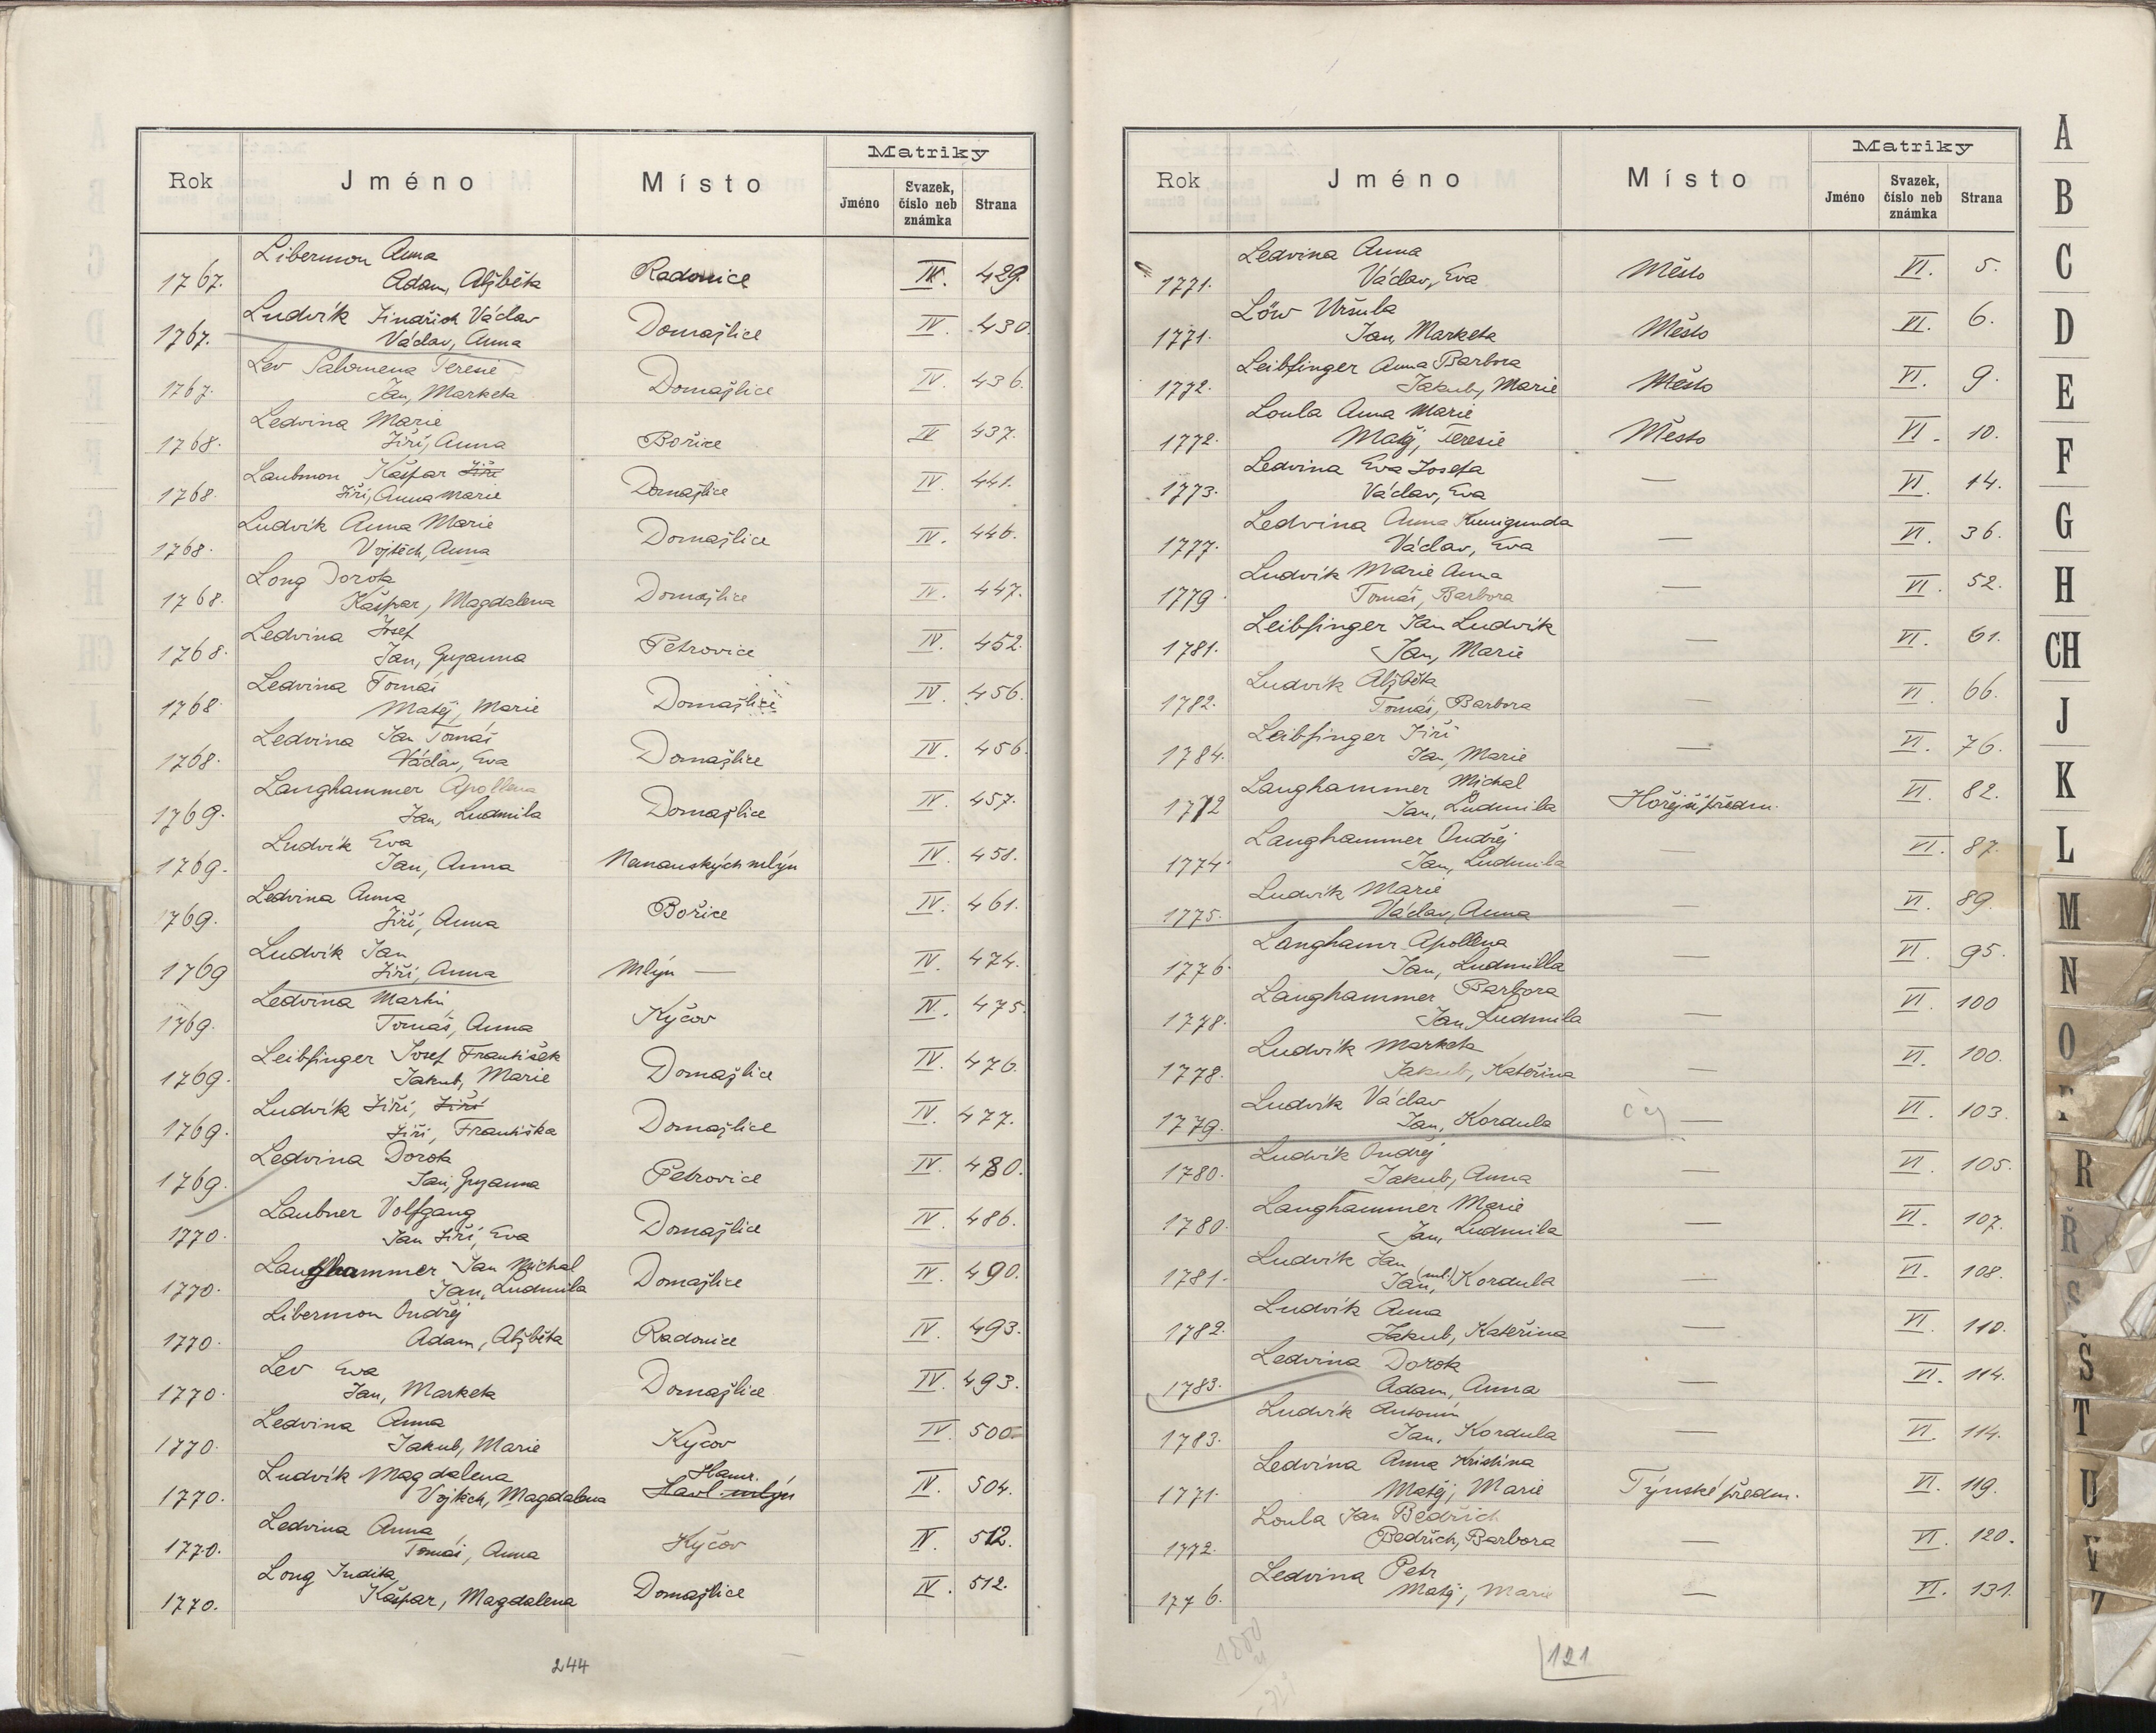 Rok Jméno Místo Matriky
Jméno Svazek, číslo neb známka Strana
Libermon Anna
1767. Adam, Alžběta Radonice IV. 429.
Ludvík Jindřich Václav
1767. Václav, Anna Domažlice IV. 430.
Lev Salomena Teresie
1767. Jan, Marketa Domažlice IV. 436.
Ledvina Marie
1768. Jiří, Anna Bořice IV 437.
Laubmon Kašpar Jiří
1768. Jiří, Anna Marie Domažlice IV. 441.
Ludvík Anna Marie
1768. Vojtěch, Anna Domažlice IV. 446.
Long Dorota
1768. Kašpar, Magdalena Domažlice IV. 447.
Ledvina Josef
1768. Jan, Zuzanna Petrovice IV. 452.
Ledvina Tomáš
1768 Matěj, Marie Domažlice IV. 456.
Ledvina Jan Tomáš
1768. Václav, Eva Domažlice IV. 456.
Langhammer Apollena
1769. Jan, Ludmila Domažlice IV. 457.
Ludvík Eva
1769. Jan, Anna Nanauských mlýn IV. 458.
Ledvina Anna
1769. Jiří, Anna Bořice IV. 461.
Ludvík Jan
1769 Jiří, Anna Mlýn — IV. 474.
Ledvina Martin
1769. Tomáš, Anna Kýčov IV. 475.
Leibfinger Josef František
1769. Jakub, Marie Domažlice IV. 476.
Ludvík Jiří, Jiří
1769. Jiří, Františka Domažlice IV. 477.
Ledvina Dorota
1769. Jan, Zuzanna Petrovice IV. 480.
Laubner Volfgang
1770. Jan Jiří, Eva Domažlice IV. 486.
Langhammer Jan Michal
1770. Jan, Ludmila Domažlice IV. 490.
Libermon Ondřej
1770. Adam, Alžběta Radonice IV. 493.
Lev Eva
1770. Jan, Marketa Domažlice IV. 493.
Ledvina Anna
1770. Jakub, Marie Kýčov IV. 500.
Ludvík Magdalena Hamr.
1770. Vojtěch, Magdalena Havl. mlýn IV. 504.
Ledvina Anna
1770. Tomáš, Anna Kýčov IV. 512.
Long Judita
1770. Kašpar, Magdalena Domažlice IV. 512.
244
Rok Jméno Místo Matriky
Jméno Svazek, číslo neb známka Strana
Ledvina Anna
1771. Václav, Eva Město VI. 5.
Löw Uršula
1771. Jan, Marketa Město VI. 6.
Leibfinger Anna Barbora
1772. Jakub, Marie Město VI. 9.
Loula Anna Marie
1772. Matěj, Teresie Město VI. 10.
Ledvina Eva Josefa
1773. Václav, Eva — VI. 14.
Ledvina Anna Kunigunda
1777. Václav, Eva — VI. 36.
Ludvík Marie Anna
1779. Tomáš, Barbora — VI. 52.
Leibfinger Jan Ludvík
1781. Jan, Marie — VI. 61.
Ludvík Alžběta
1782. Tomáš, Barbora — VI. 66.
Leibfinger Jiří
1784. Jan, Marie — VI. 76.
Langhammer Michal
1772 Jan, Ludmila Hořejší předm. VI. 82.
Langhammer Ondřej
1774. Jan, Ludmila — VI. 87.
Ludvík Marie
1775. Václav, Anna — VI. 89.
Langhamr Apollena
1776. Jan, Ludmilla — VI. 95.
Langhammer Barbora
1778. Jan, Ludmila — VI. 100
Ludvík Marketa
1778. Jakub, Kateřina — VI. 100.
Ludvík Václav
1779. Jan, Kordula — VI. 103.
Ludvík Ondřej
1780. Jakub, Anna — VI. 105.
Langhammer Marie
1780. Jan, Ludmila — VI. 107.
Ludvík Jan
1781. Jan, (ml.) Kordula — VI. 108.
Ludvík Anna
1782. Jakub, Kateřina — VI. 110.
Ledvina Dorota
1783. Adam, Anna — VI. 114.
Ludvík Antonín
1783. Jan, Kordula — VI. 114.
Ledvina Anna Kristina
1771. Matěj, Marie Týnské předm. VI. 119.
Loula Jan Bedřich
1772. Bedřich, Barbora — VI. 120.
Ledvina Petr
1776. Matěj, Marie — VI. 131.
121
A
B
C
D
E
F
G
H
CH
J
K
L
M
N
O
P
R
Ř
S
Š
T
U
V